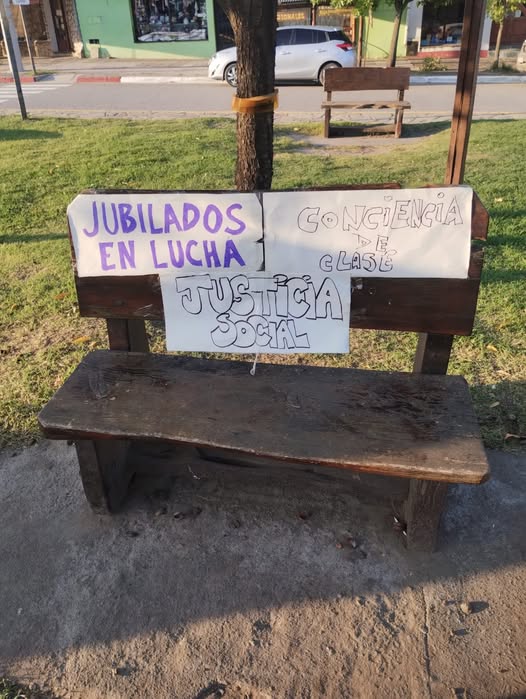 JUBILADOS
EN LUCHA
CONCIENCIA
DE
CLASE
JUSTICIA
SOCIAL